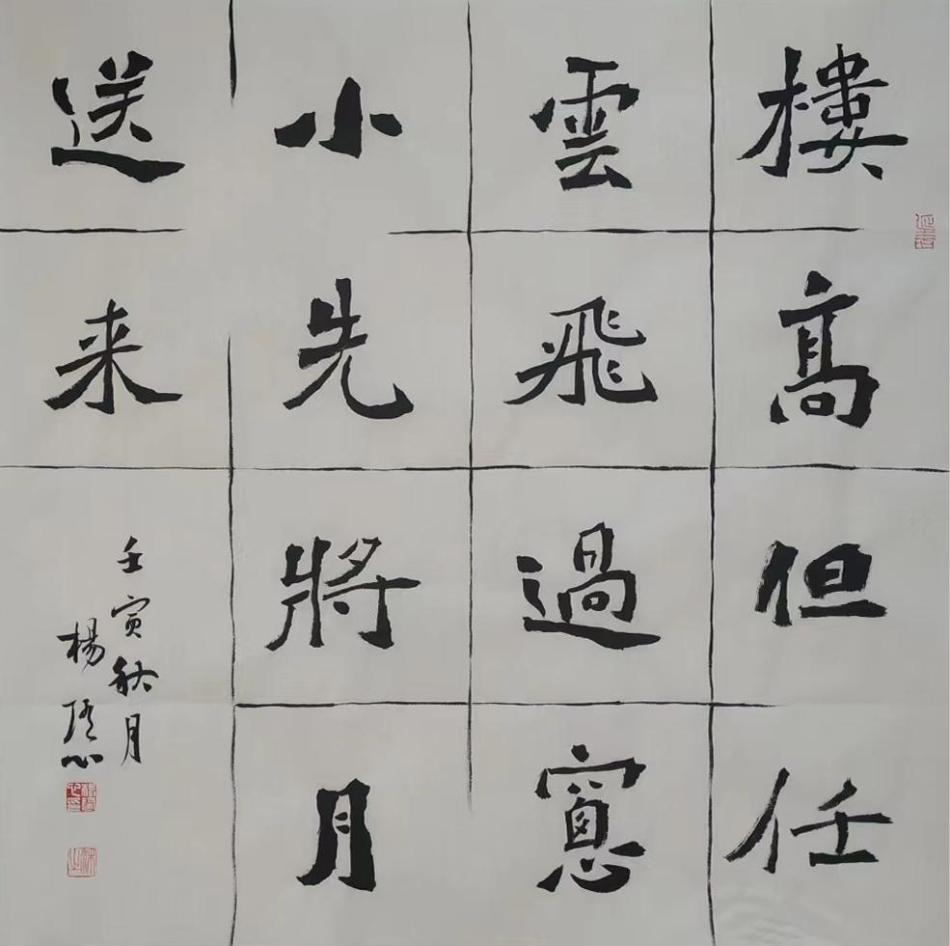 樓高但任
雲飛過窻
小先將月
送来
壬寅秋月
楊